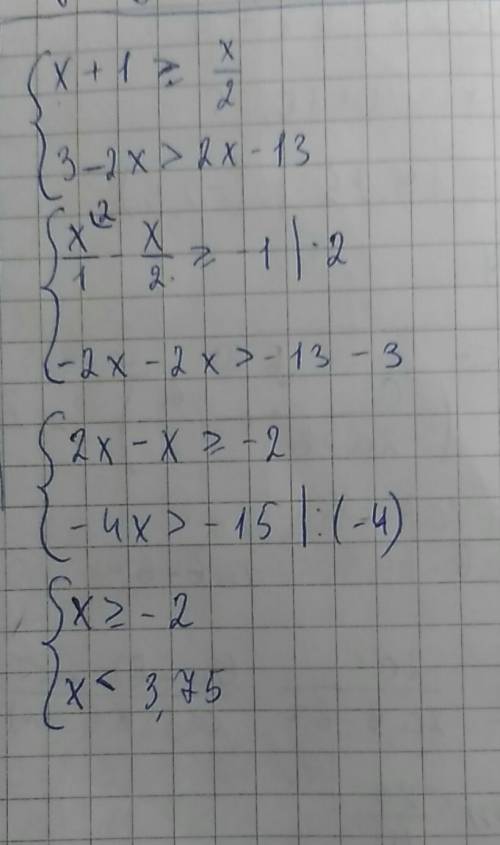 x + 1 ≥ x/2
3 - 2x > 2x - 13
x^(2/1 - x/2 ≥ -1 | · 2
-2x - 2x > -13 - 3
2x - x ≥ -2
-4x > -15 | : (-4)
x ≥ -2
x < 3,75